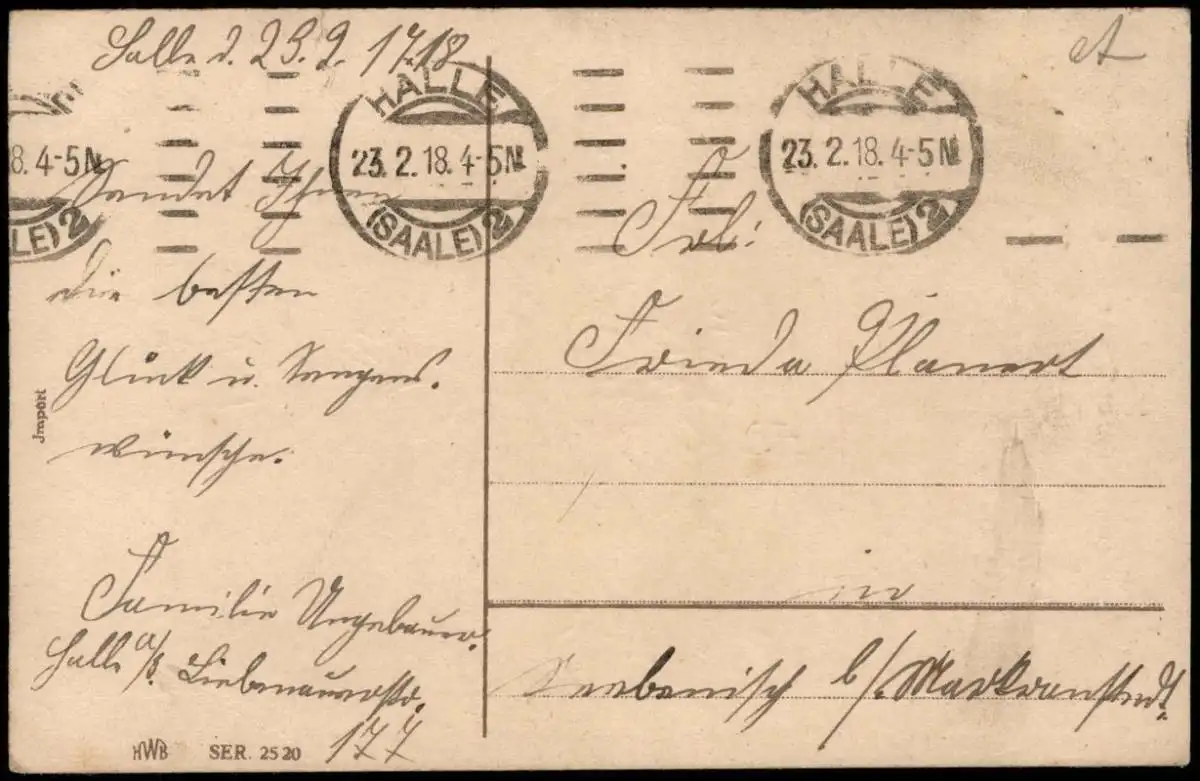 Halle d. 23.2.1718
HALLE
23.2.18.4-5N
(SAALE) 2
HALLE
23.2.18.4-5N
(SAALE) 2
8.4-5N
ALE) 2
Sendet Ihnen
die besten
Glück u. Seegens.
wünsche.
Familie
Halle a/S. Liebenauerstr.
177
Import
HWB SER. 2520
Frl:
Frieda Planert
in
Seebenisch b/. Markranstedt.